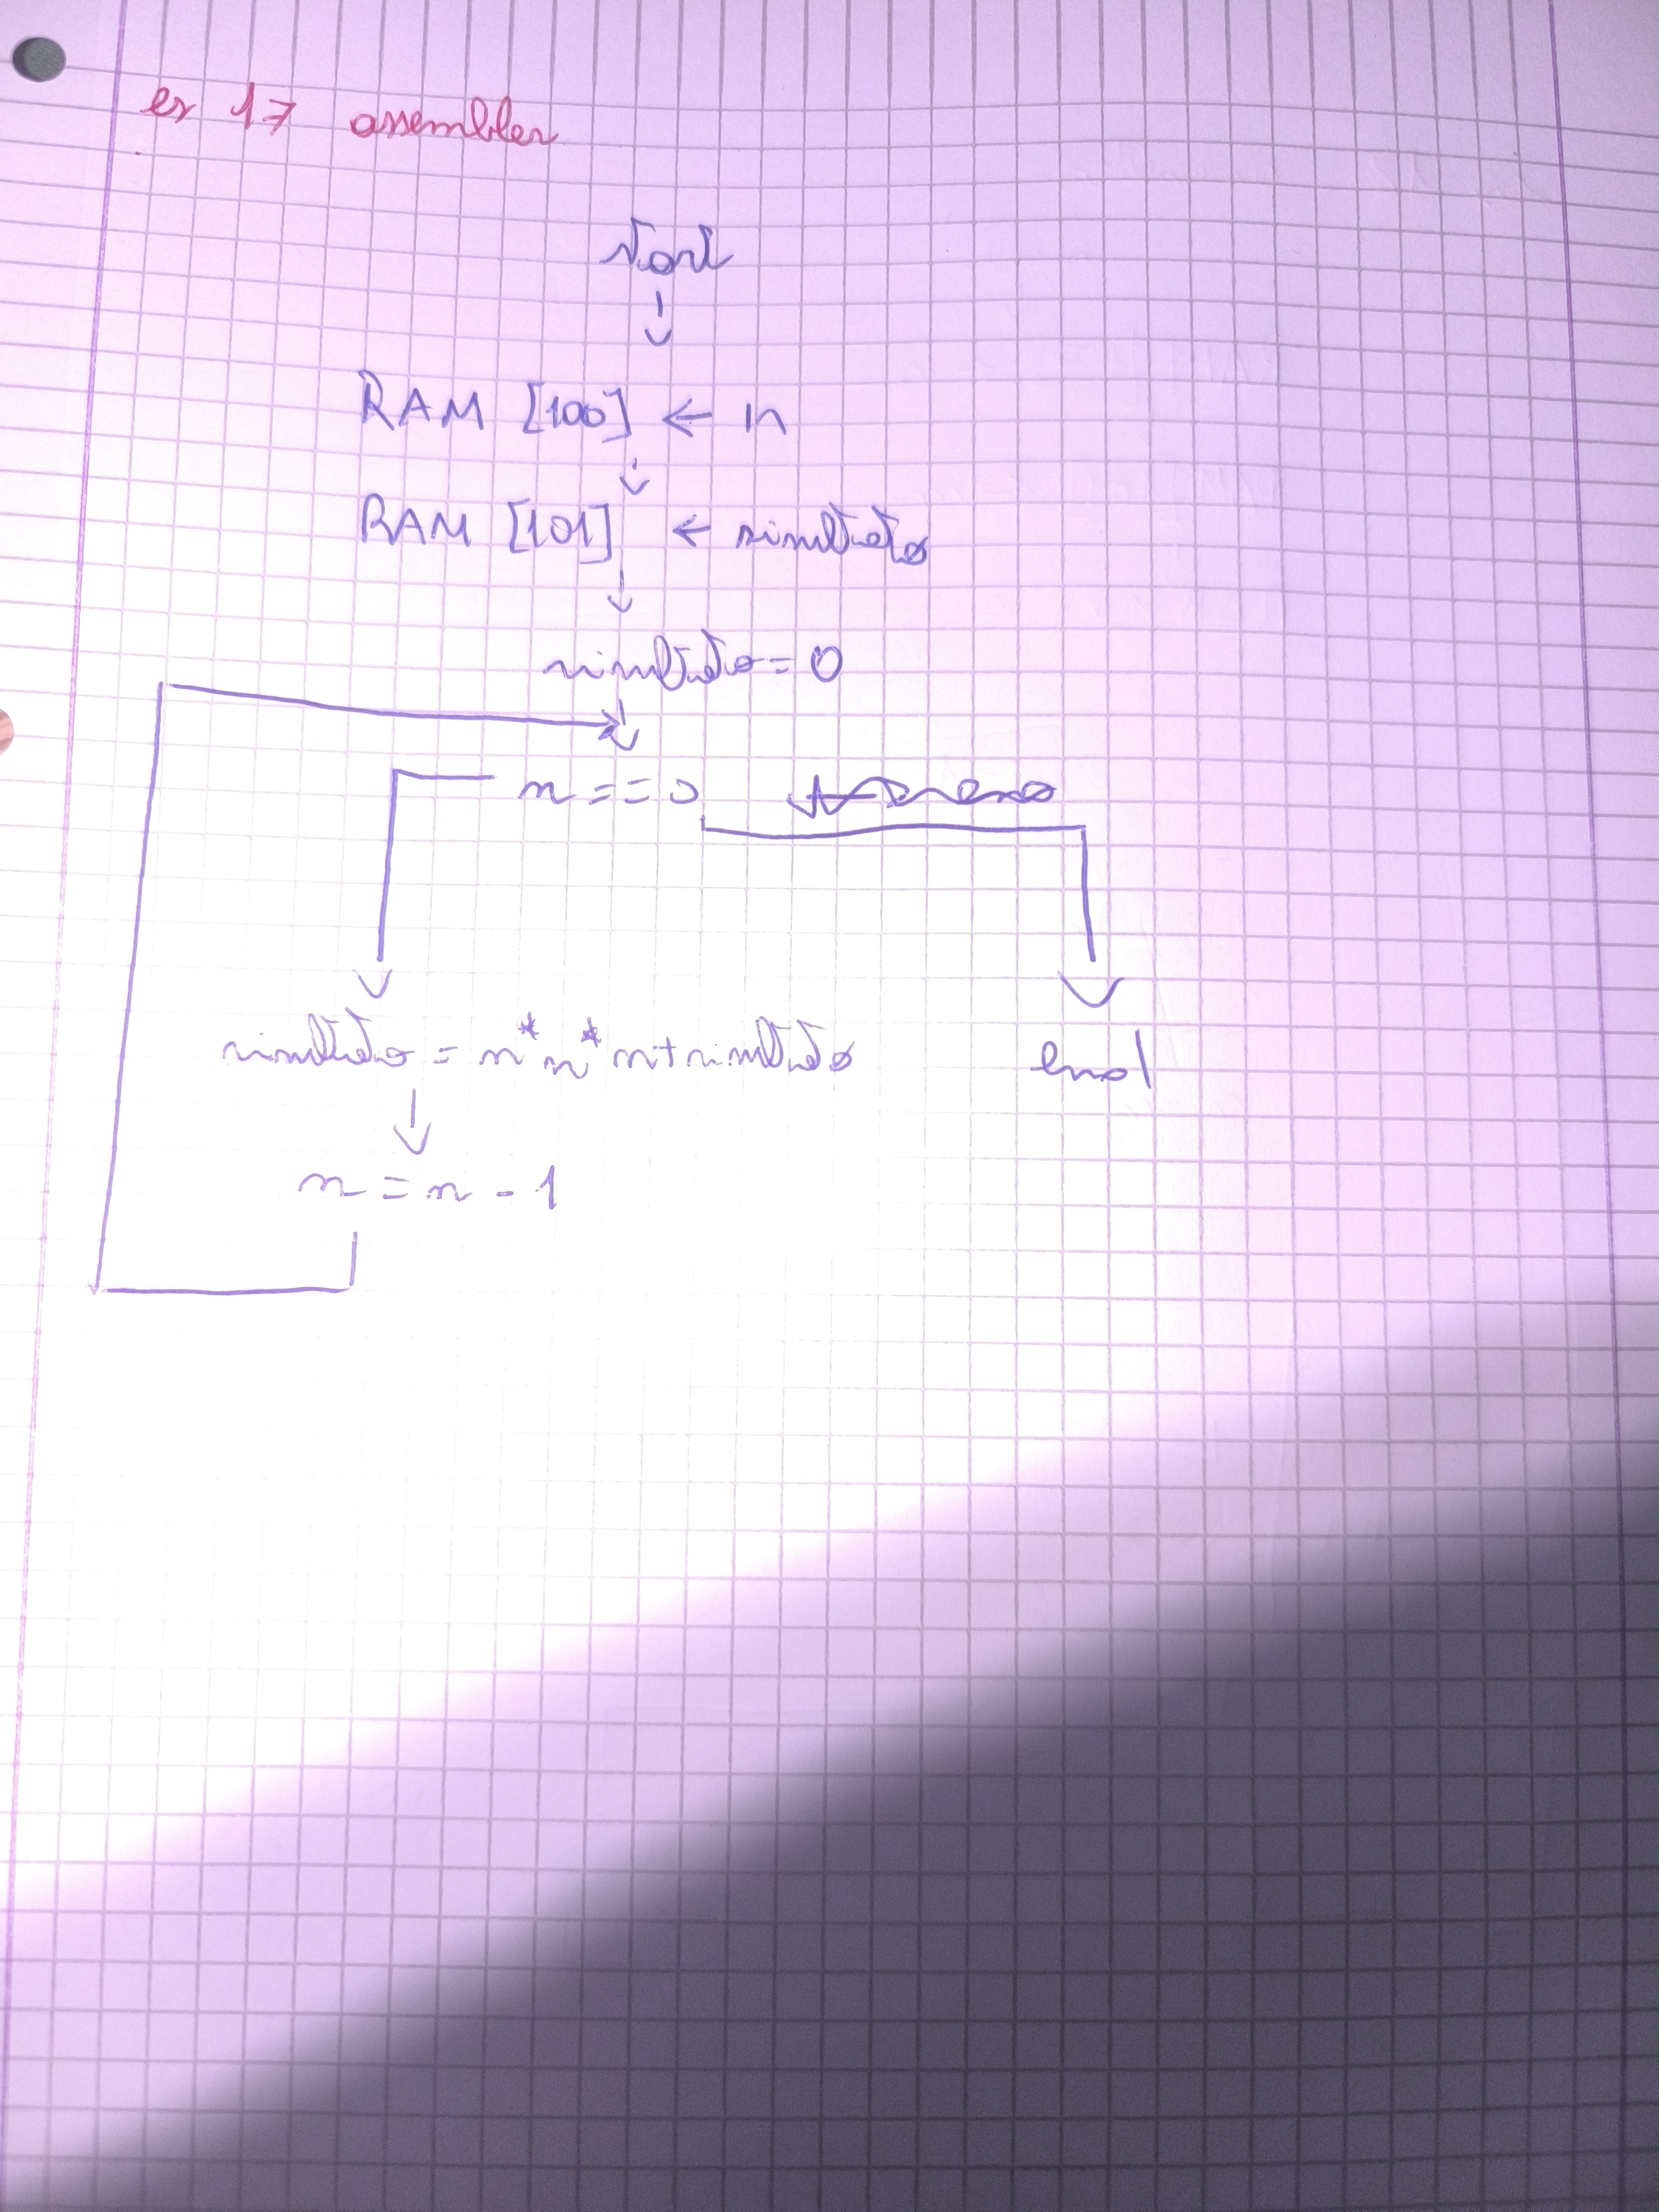 es 17 assembler
start
RAM [100] ← n
RAM [101] ← risultato
risultato = 0
n == 0
risultato = n * n * n + risultato
end
n = n - 1